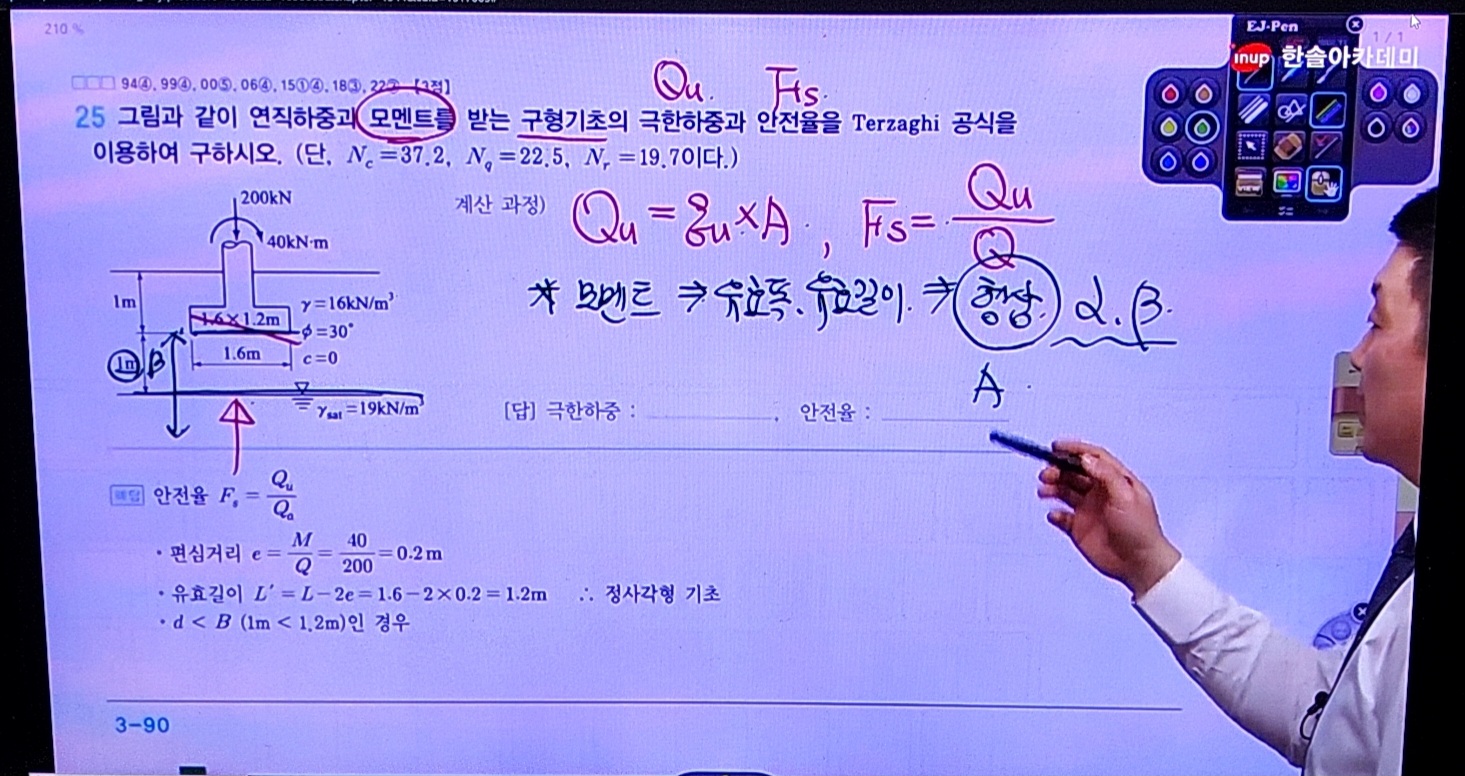 210 %
1 / 1
EJ-Pen
inup 한솔아카데미
VIEW
94④, 99④, 00⑤, 06④, 15①④, 18③, 22② 【3점】
Qu. Fs.
25 그림과 같이 연직하중과 모멘트를 받는 구형기초의 극한하중과 안전율을 Terzaghi 공식을
이용하여 구하시오. (단, N_c=37.2, N_q=22.5, N_r=19.7이다.)
계산 과정)
Qu = qu×A, Fs = Qu/Q
* 모멘트 ⇒ 유효폭. 유효길이. ⇒ 형상. α. β.
A
200kN
40kN·m
1m
γ=16kN/m³
1.6×1.2m
φ=30°
1m
B
1.6m
c=0
γ_sat=19kN/m³
[답] 극한하중 : , 안전율 :
해답 안전율 F_s = Q_u/Q_a
· 편심거리 e = M/Q = 40/200 = 0.2m
· 유효길이 L′ = L−2e = 1.6−2×0.2 = 1.2m ∴ 정사각형 기초
· d < B (1m < 1.2m)인 경우
3-90